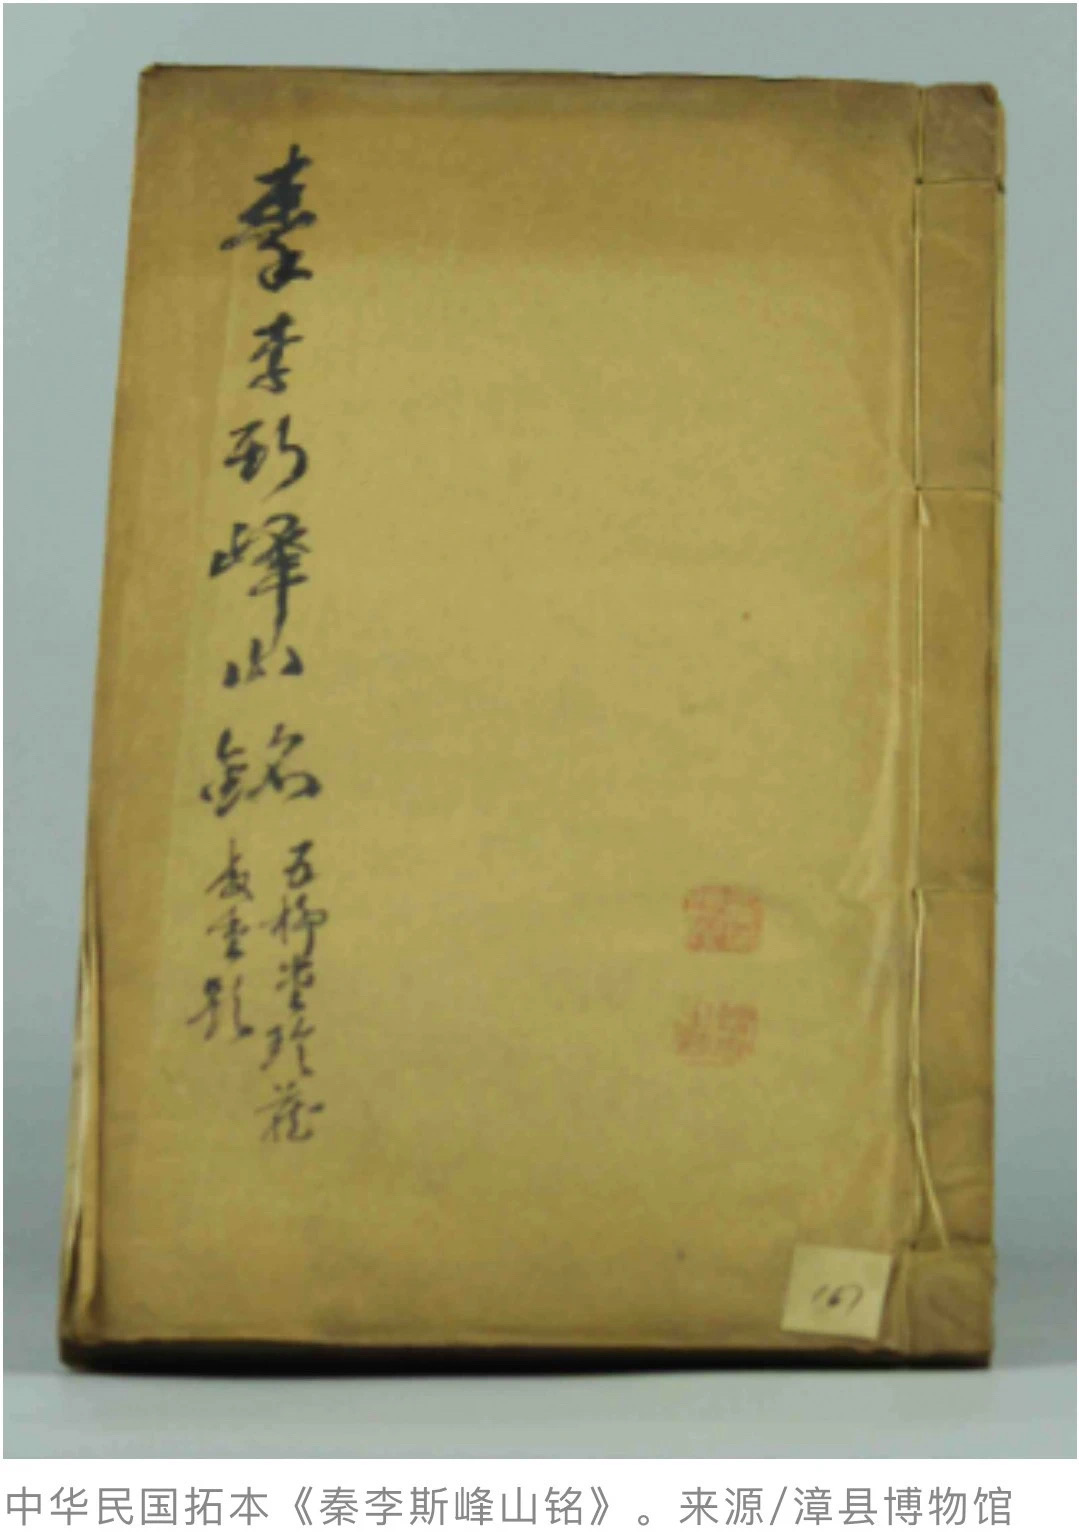 秦李斯峄山铭
五柳堂珍藏
题
167
中华民国拓本《秦李斯峰山铭》。来源/漳县博物馆